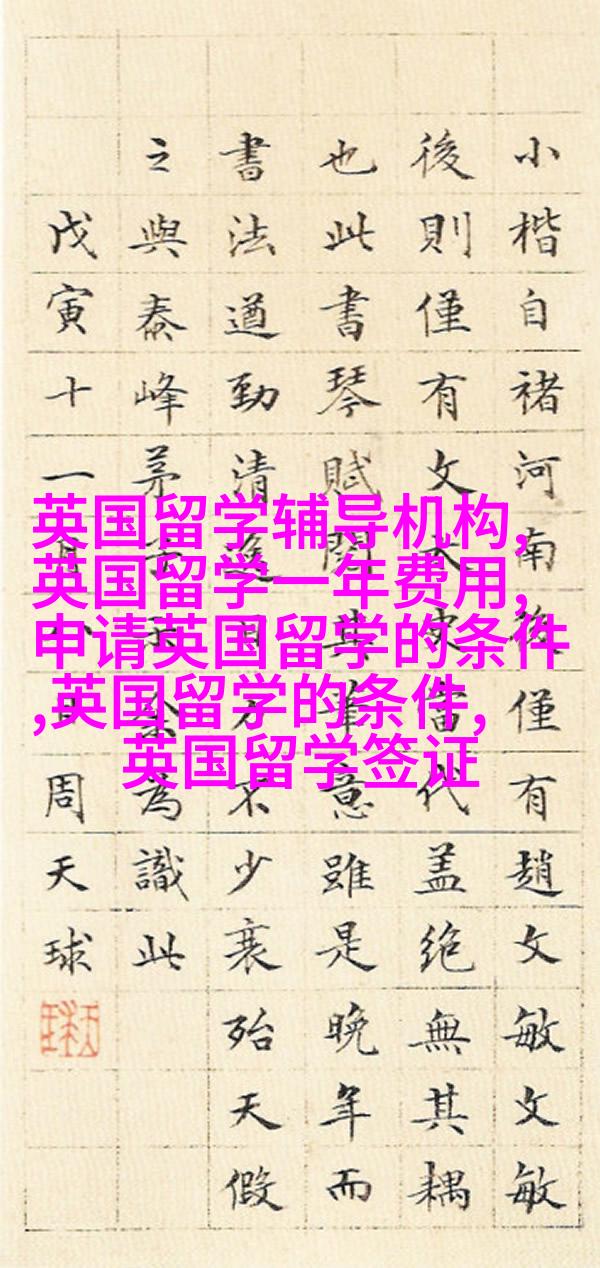 小楷自褚河南後僅有趙文敏文敏
後則僅有文史當代盖絶無其耦
也此書琴賦閲其筆意雖是晚年而
書法遒勁清不少衰殆天假
之與泰峰茅余為識此
戊寅十一月周天球
英国留学辅导机构,
英国留学一年费用,
申请英国留学的条件
,英国留学的条件,
英国留学签证